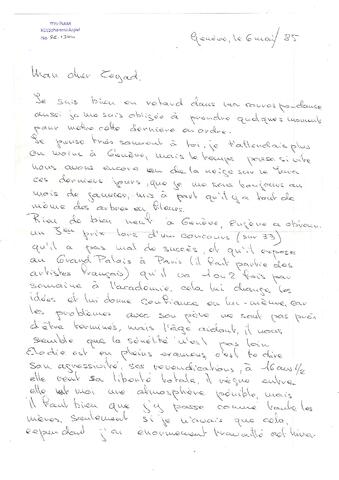 Genève, le 6 mai / 85
Mon cher
Je suis bien en retard dans ma correspondance
aussi je me suis obligée à prendre quelques moments
pour mettre cette dernière en ordre.
Je pense très souvent à toi, je t'attendais plus
ou moins à Genève, mais le temps passe si vite
nous avons encore eu de la neige sur le Jura
ces derniers jours, que je me sens toujours au
mois de janvier, mis à part qu'il y a tout de
même des arbres en fleurs.
Rien de bien neuf à Genève, Eugène a obtenu
un 3ème prix lors d'un concours (sur 33)
qu'il a pas mal de succès et qu'il expose
au Grand Palais à Paris (il fait partie des
artistes français) qu'il va 1 ou 2 fois par
semaine à l'académie, cela lui change les
idées et lui donne confiance en lui-même, car
les problèmes avec son père ne sont pas près
d'être terminés, mais l'âge aidant, il nous
semble que la sérénité n'est pas loin
Elodie est en pleins examens, c'est te dire
son agressivité, ses revendications, à 16 ans 1/2
elle veut sa liberté totale, il règne entre
elle et moi une atmosphère pénible, mais
il faut bien que j'y passe comme toutes les
mères, seulement si je n'avais que cela,
cependant j'ai énormément travaillé cet hiver